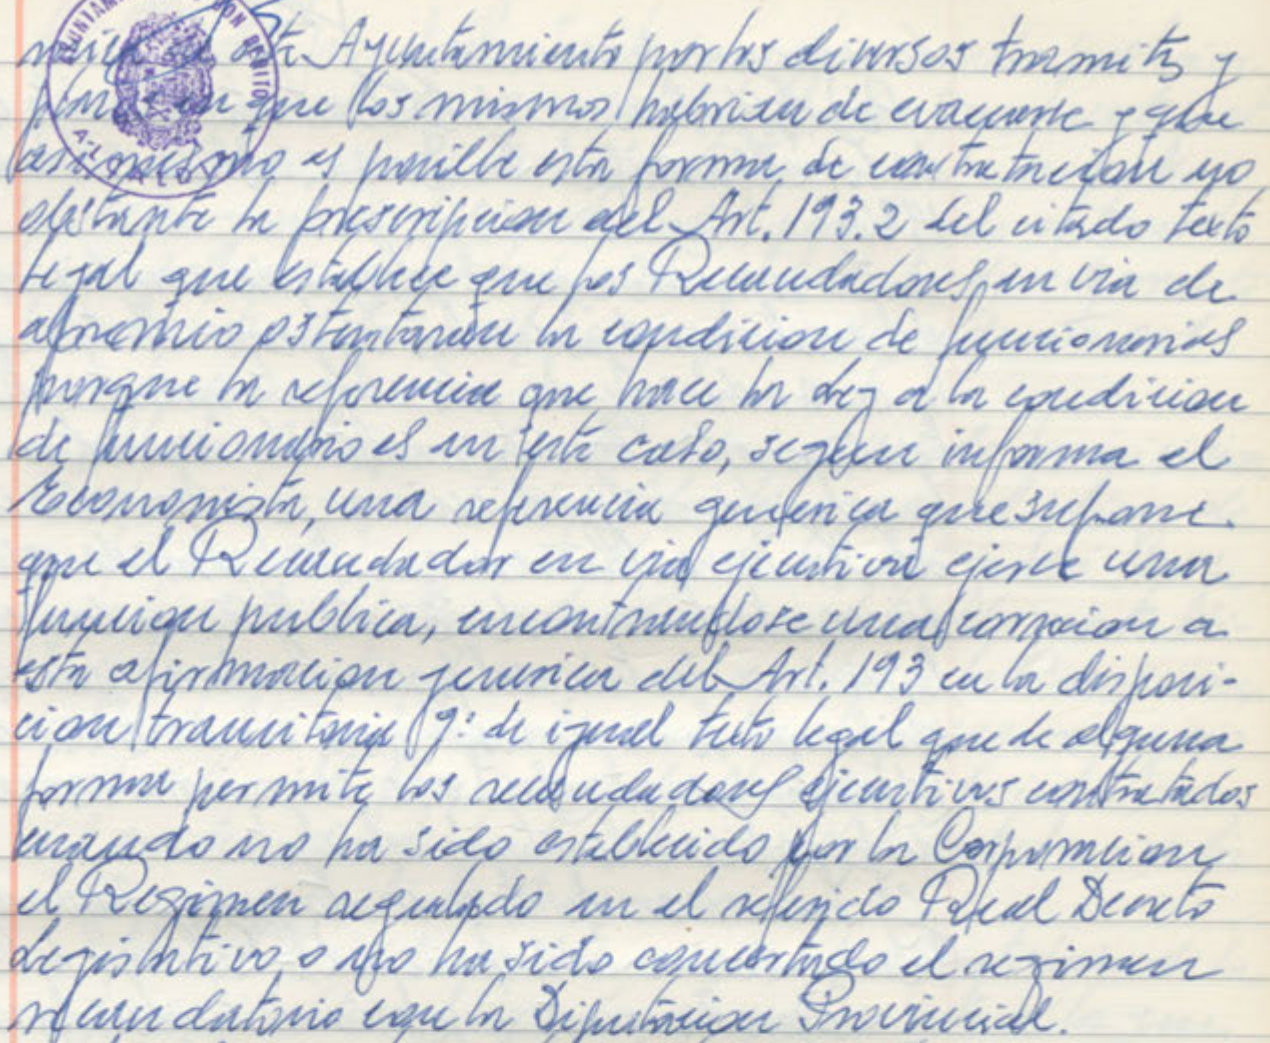 de este Ayuntamiento por los diversos tramites y
en que los mismos habrian de evacuarse y que
asimismo es posible esta forma de contratacion no
obstante la prescripcion del Art. 193.2 del citado texto
legal que establece que los Recaudadores en via de
apremio ostentaran la condicion de funcionarios
porque la referencia que hace la Ley a la condicion
de funcionario es en este caso, segun informa el
Economista, una referencia generica que supone
que el Recaudador en via ejecutiva ejerce una
funcion publica, encontrandose una a
esta afirmacion generica del Art. 193 en la disposi-
cion transitoria 9ª de igual texto legal que de alguna
forma permite los recaudadores ejecutivos contratados
cuando no ha sido establecido por la Corporacion
el Regimen regulado en el referido Real Decreto
Legislativo o no ha sido concertado el regimen
recaudatorio con la Diputacion Provincial.